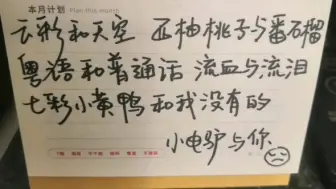 本月计划 Plan this month
云彩和天空 西柚桃子与番石榴
粤语和普通话 流血与流泪
七彩小黄鸭和我没有的
小电驴与你